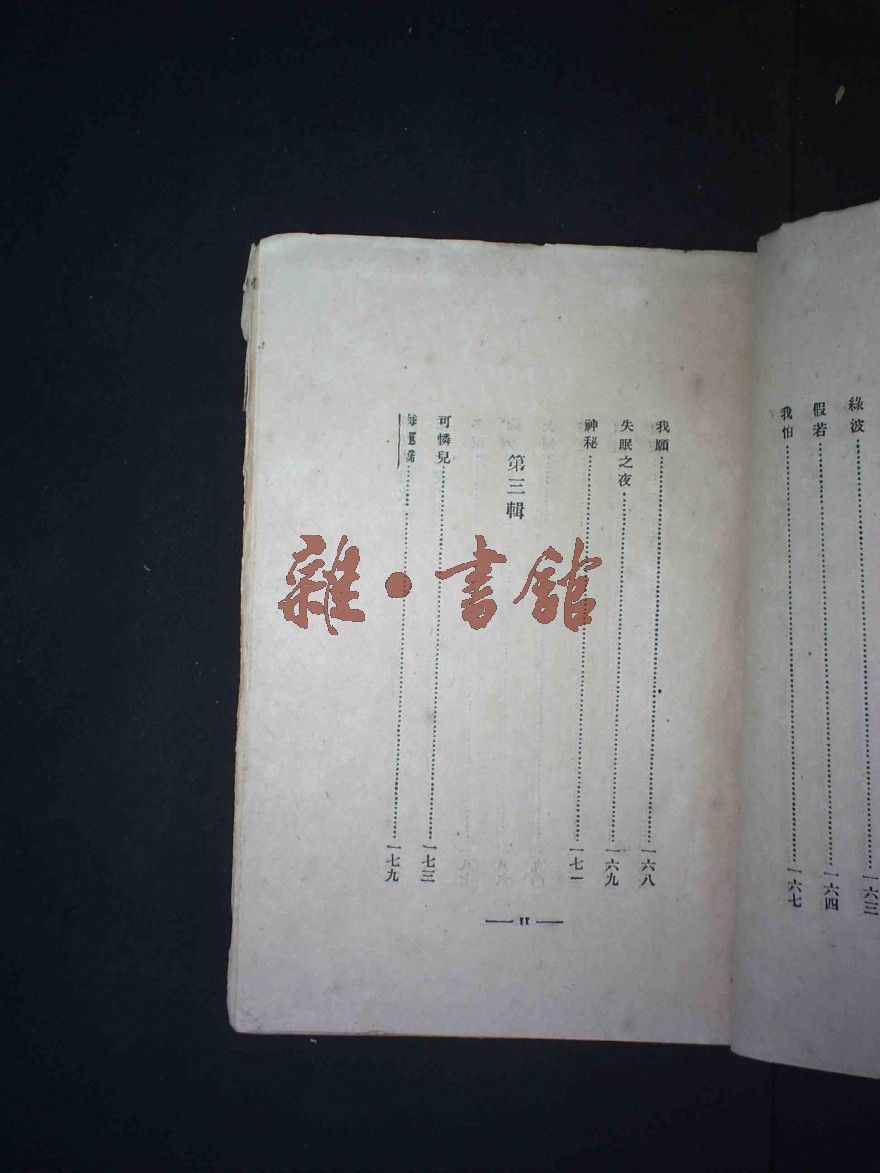 綠波……一六三
假若……一六四
我怕……一六七
我願……一六八
失眠之夜……一六九
神秘……一七一
第三輯
可憐兒……一七三
……一七九
II
雜•書館